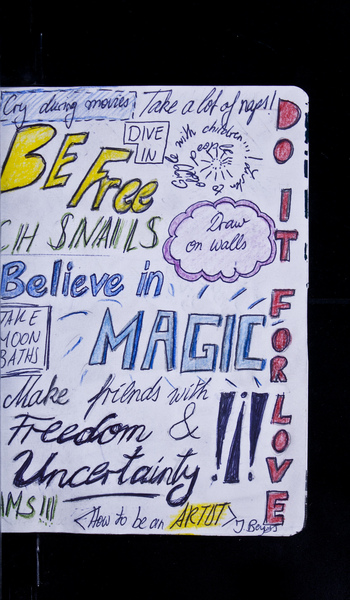 Cry during movies, Take a lot of naps!
BE Free
DIVE IN
Giggle with children...
CH SNAILS
Draw on walls
Believe in
MAGIC
TAKE MOON BATHS
Make friends with
Freedom &
Uncertainty !!!
AMS!!!
<How to be an ARTIST>
DO IT FOR LOVE